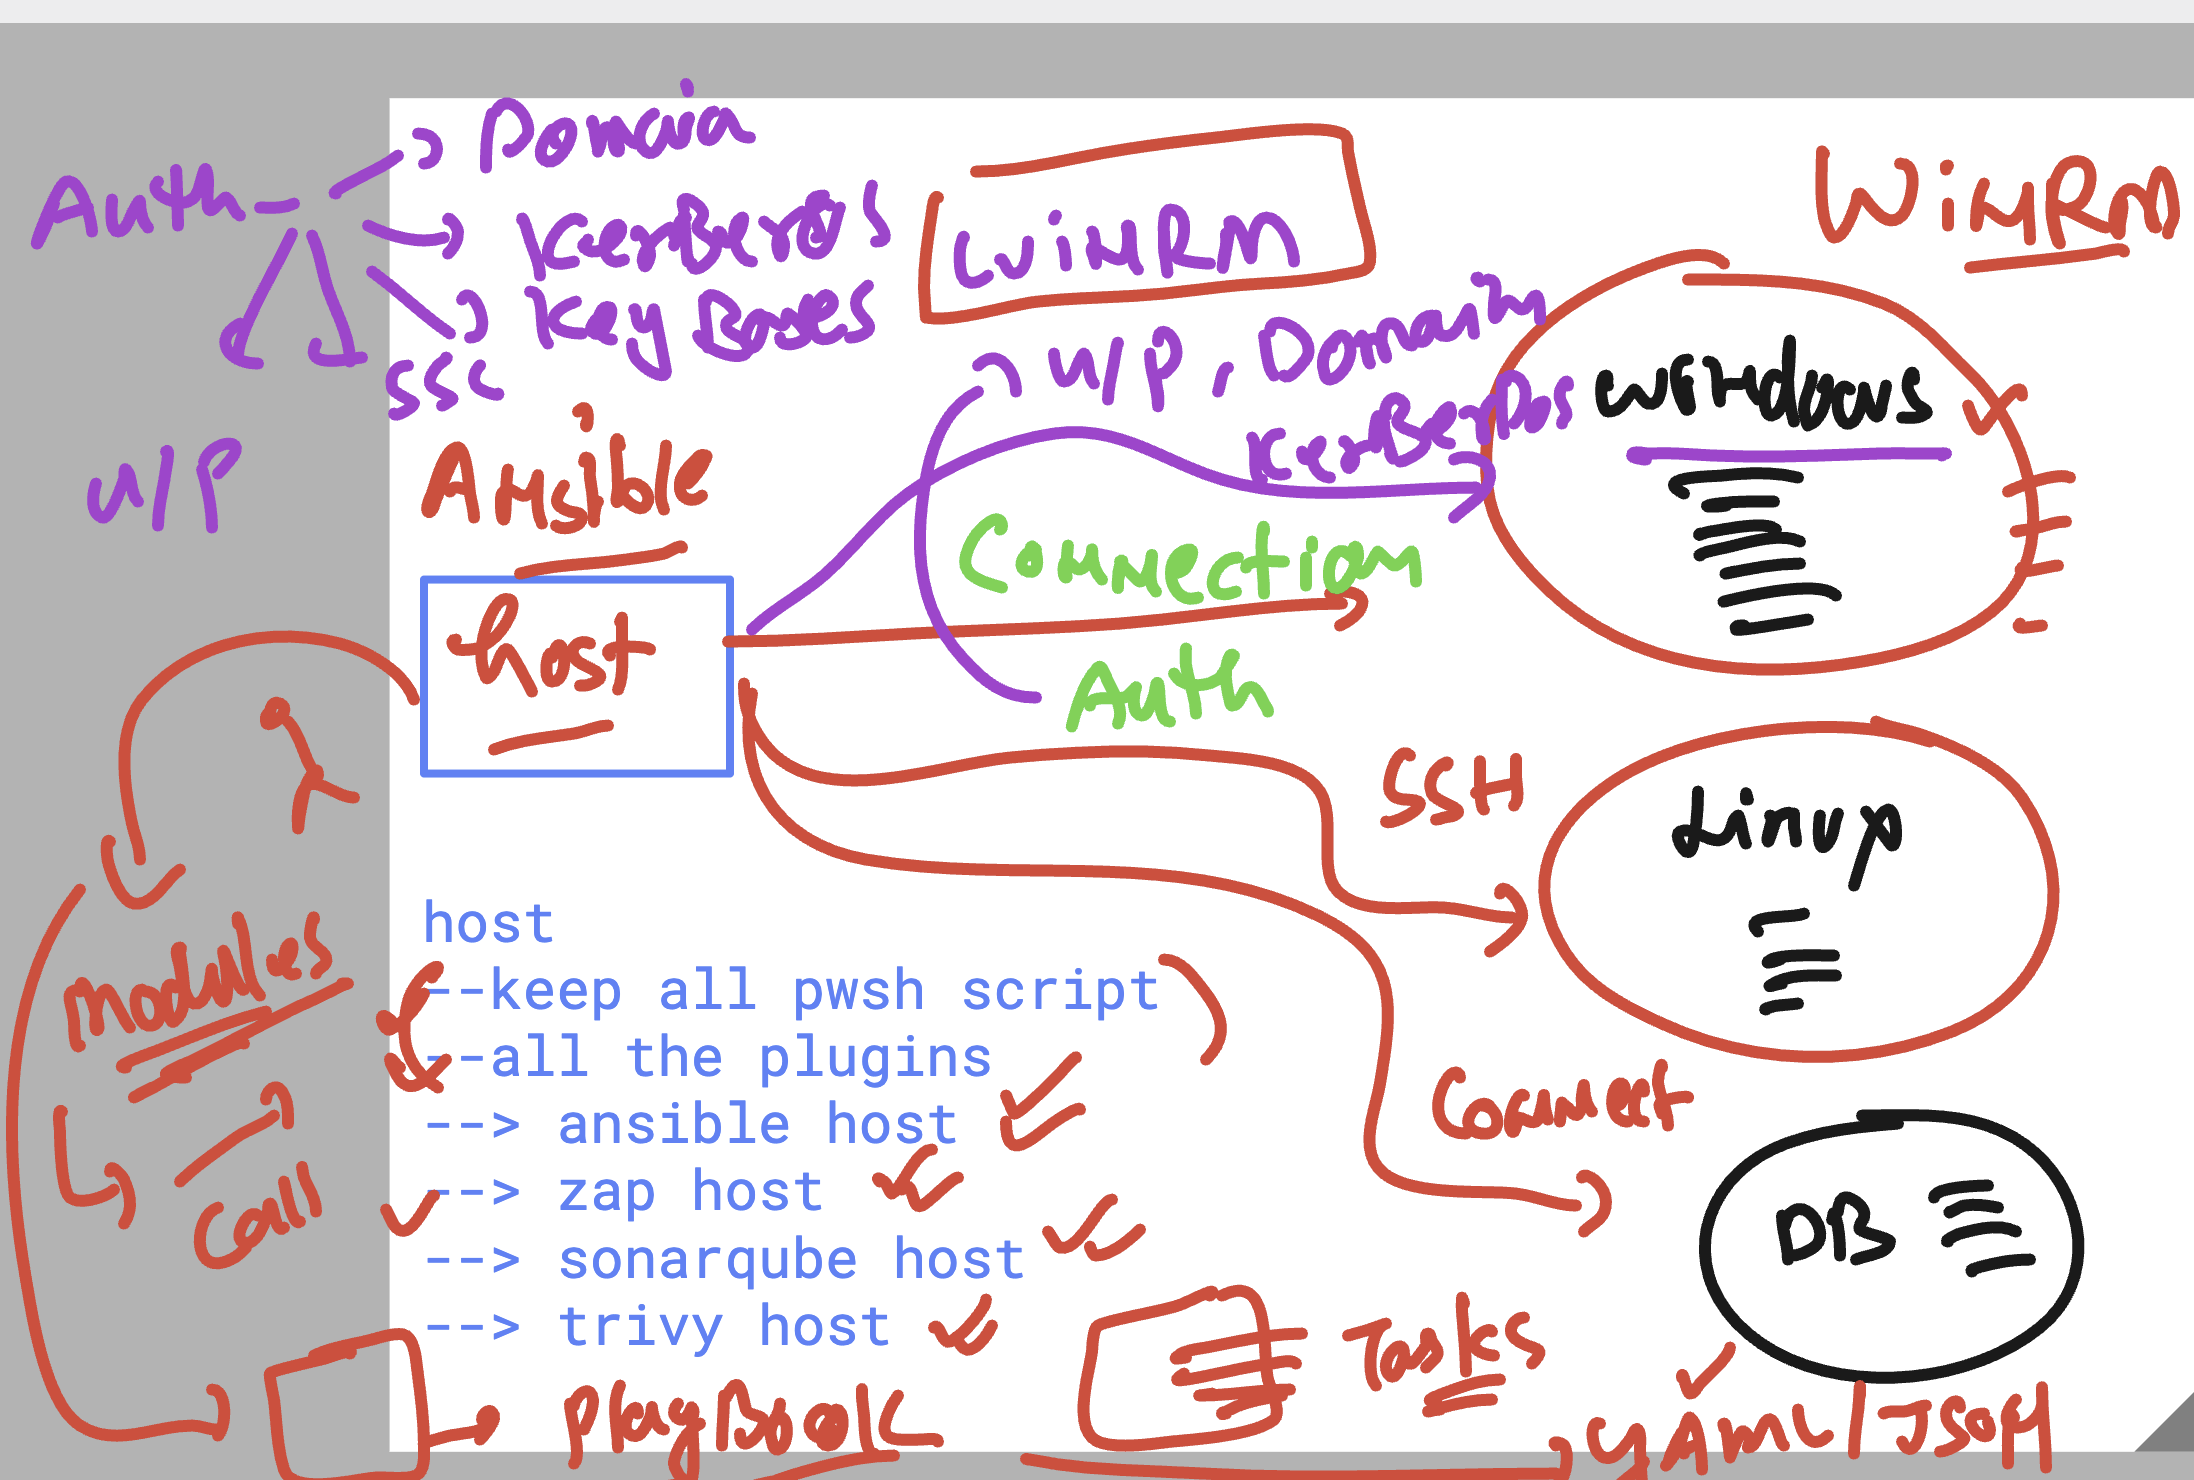 Domain
Auth -
KerBeros
Key Bases
SSL
U/P
WinRM
WinRM
U/P, Domain
KerBeros
Windows
Ansible
Connection
host
Auth
SSH
Linux
host
--keep all pwsh script
--all the plugins
--> ansible host
--> zap host
--> sonarqube host
--> trivy host
modules
Call
Connect
DB
Tasks
PlayBook
YAML/JSON